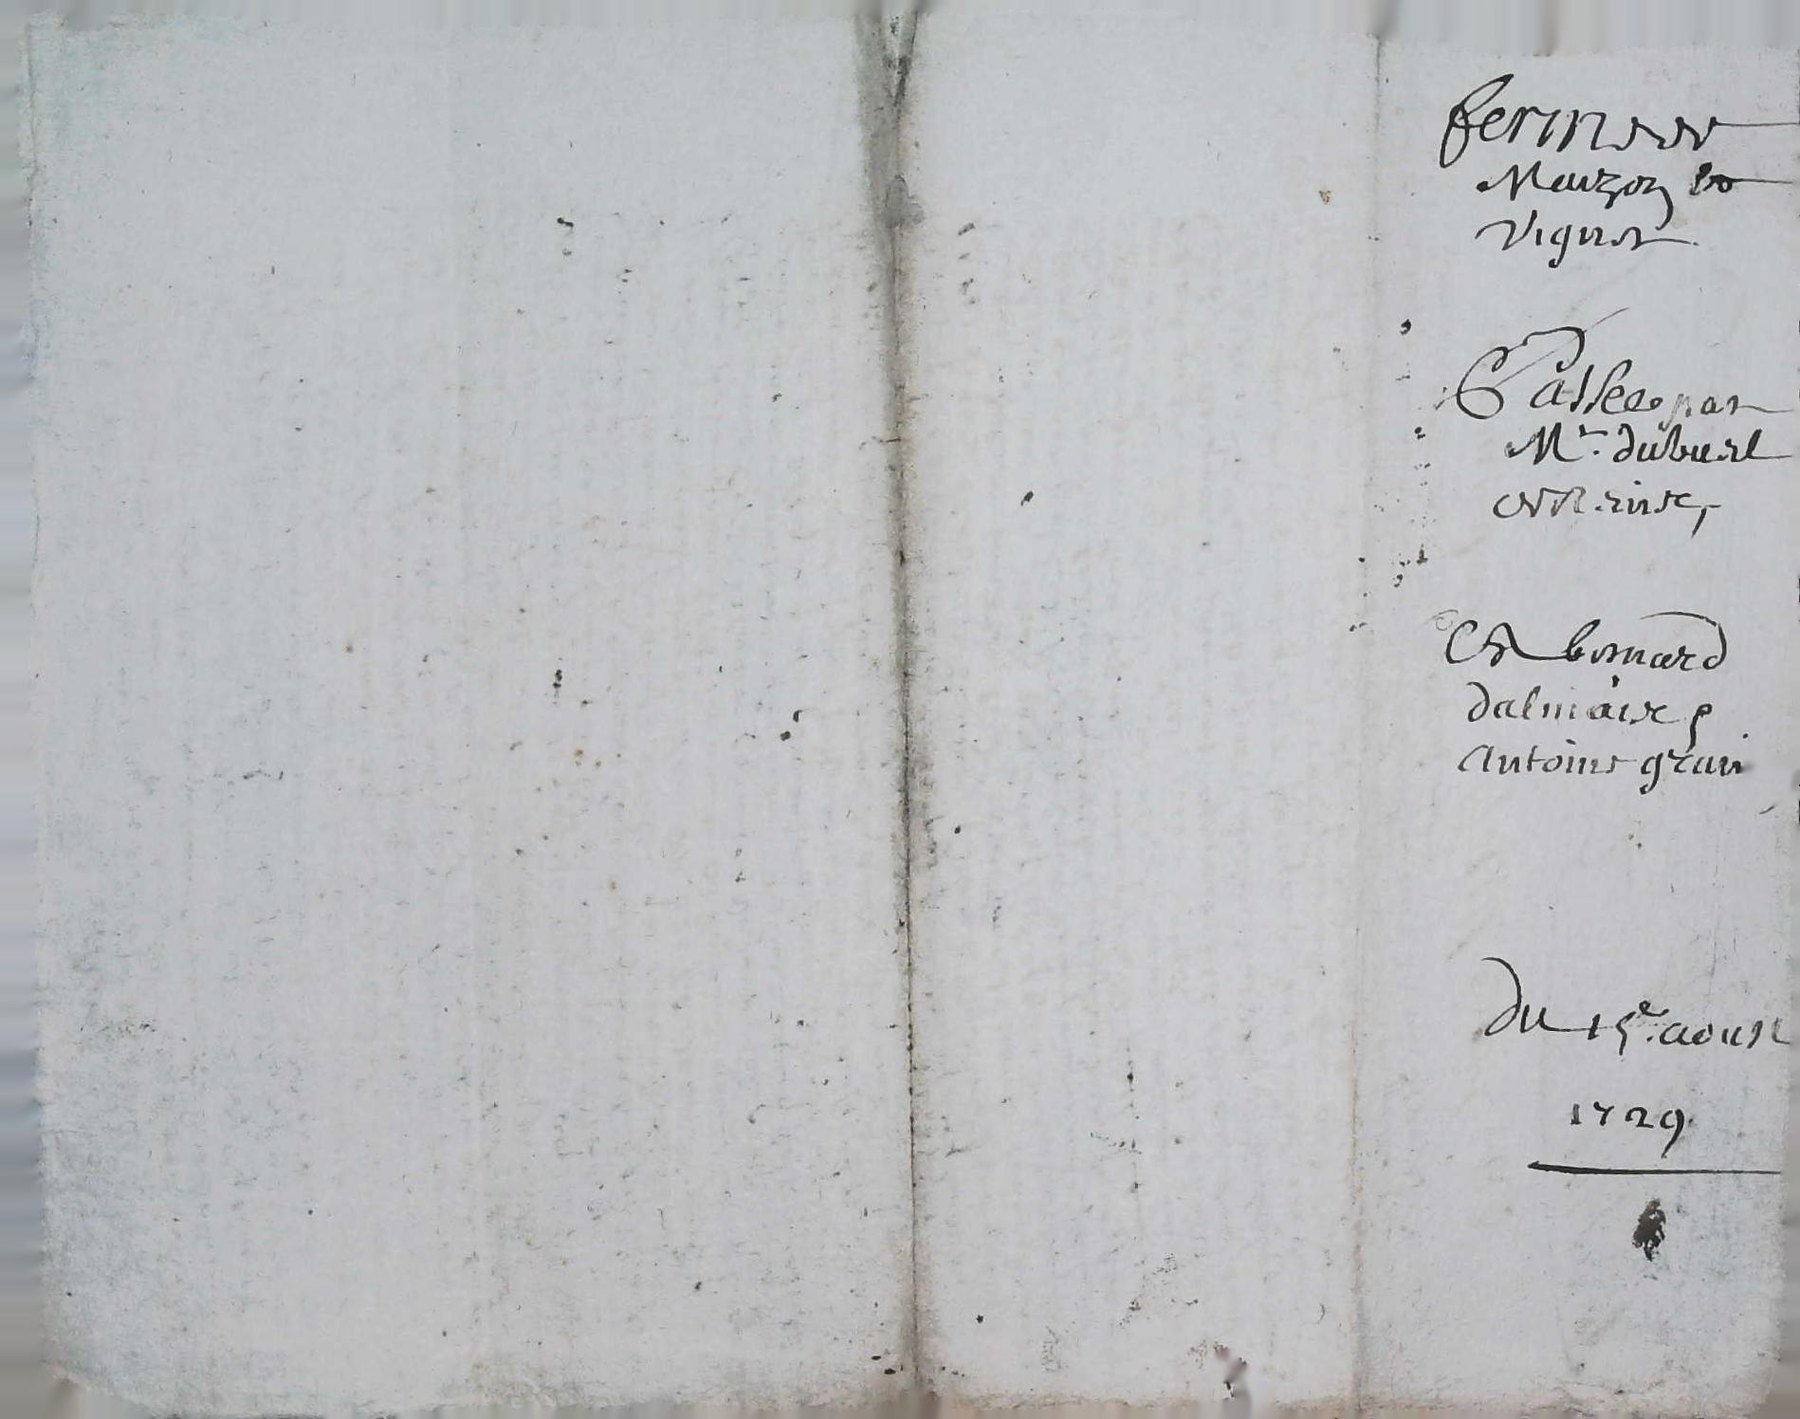 ferme
Maizon &
Vigne
Passee par
Mr. dubuest
Et bernard
dalmaise &
antoine gran
du 15e. aoust
1729